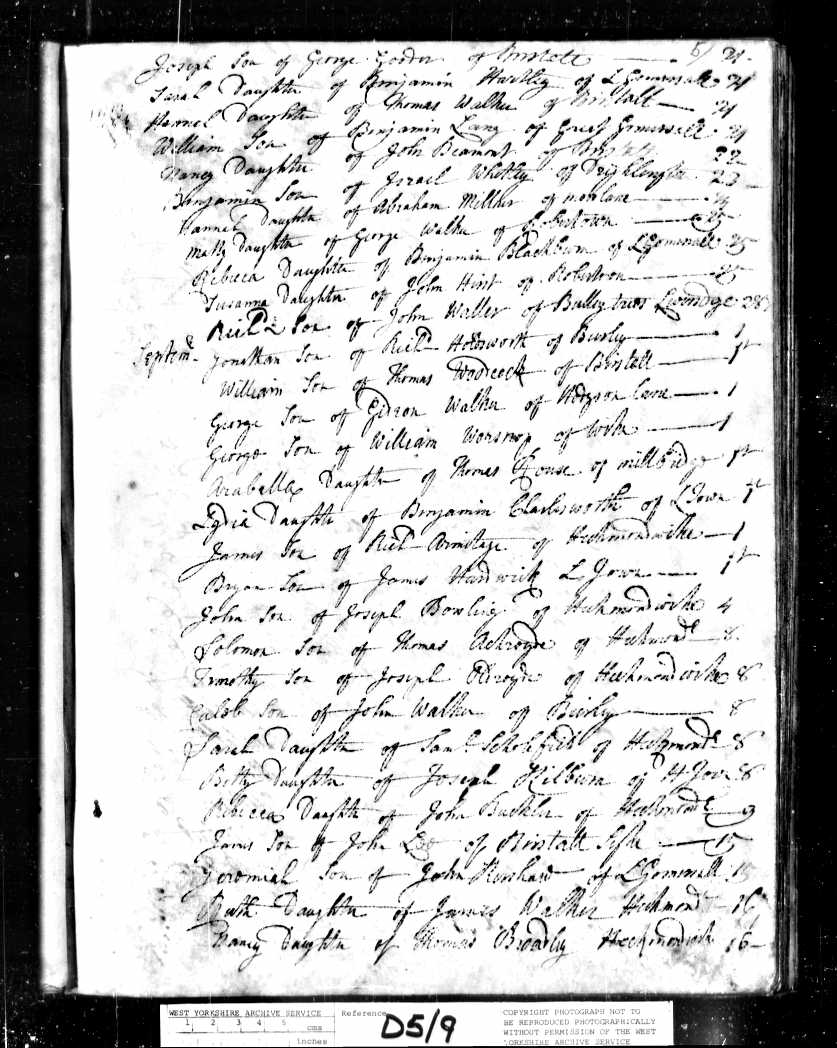 Joseph Son of George of Birstall 21
Sarah Daughter of Benjamin Hartley of L Gomersall 21
Hannah Daughter of Thomas Walker of Birstall 21
William Son of Benjamin Lang of Great Gomersall 21
Nancy Daughter of John Beamont of Birstall 22
Benjamin Son of Israel Whitley of Drighlington 23
Hannah Daughter of Abraham Millner of moorlane
Matty Daughter of George Walker of Robertown 25
Rebecca Daughter of Benjamin Blackburn of L Gomersall 25
Susanna Daughter of John Hirst of Robertown 25
Richd Son of John Waller of Bulley trees Liversidge 28
Septemr Jonathan Son of Richd Holdsworth of Burley 1
William Son of Thomas Woodcock of Birstall 1st
George Son of Gideon Walker of Hodgson Lane 1
George Son of William Worsnop of Wike 1
Arabella Daughter of Thomas Crouse of millbridge 1st
Lydia Daughter of Benjamin Charlesworth of L Town 1st
James Son of Richd Armitage of Heckmondwike 1
Bryan Son of James Hardwick L Town 1st
John Son of Joseph Bowling of Heckmondwike 4
Solomon Son of Thomas Ackroyde of Heckmond 8
Timothy Son of Joseph Oldroyde of Heckmondwike 8
Caleb Son of John Walker of Birley 8
Sarah Daughter of Saml Scholefield of Heckmond 8
Betty Daughter of Joseph Kilburn of H Town 8
Rebecca Daughter of John Buckley of Heckmond 9
James Son of John Lee of Birstall Syke 15
Jeremiah Son of John Kershaw of L Gomersall 15
Ruth Daughter of James Walker Heckmond 16
Nancy Daughter of Thomas Broadley Heckmondwike 16
WEST YORKSHIRE ARCHIVE SERVICE
1 2 3 4 5 cms
inches
Reference
D5/9
COPYRIGHT PHOTOGRAPH NOT TO
BE REPRODUCED PHOTOGRAPHICALLY
WITHOUT PERMISSION OF THE WEST
YORKSHIRE ARCHIVE SERVICE